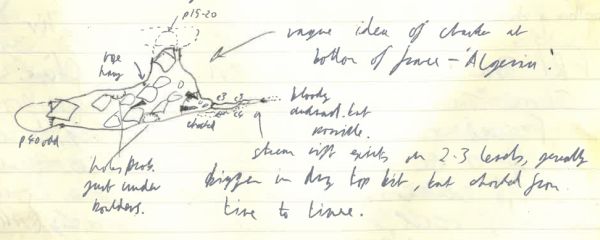 p15-20
vague idea of chamber at
bottom of - 'Algeria'!
rope
hang
c3 c3
c4
bloody
awkward but
possible.
choked
p40 odd
holes prob.
just under
boulders.
stream rift exists on 2-3 levels, generally
bigger in dry top bit, but choked from
time to time.